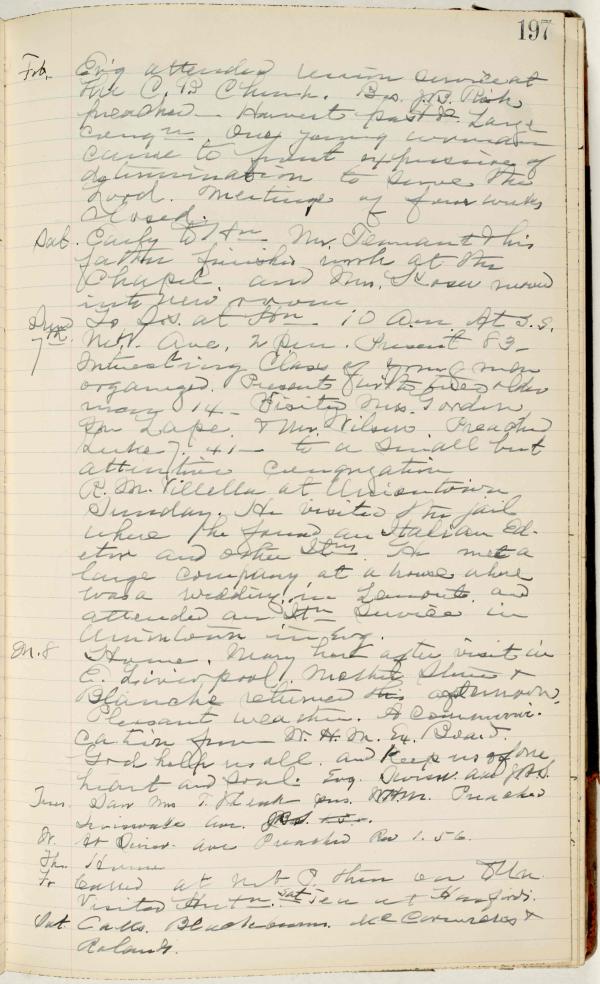 197
Feb. Ev'g attended union service at
the C. P. Church. Bro. J. B. Risk
preached - Harvest past &c Large
congn. One young woman
came to front expressive of
determination to serve the
Lord. Meetings of four weeks
closed.
Sat. Early to Hn. Mr. Tennant & his
father finished work at the
Chapel. and Mrs. moved
into new room
7th To Jos. at Hn 10 A.m. At S.S.
Ave, 2 p.m. Present 83 -
Interesting Class of young men
organized. Present
14 - Visited Mrs. Gordon,
Lape, & Mr. Wilson. Preached
Luke 7: 41 - to a small but
attentive congregation
R. M. Villella at Uniontown
Sunday. He visited the jail
where he found an Italian Ed-
itor and other Itns. He met a
large company at a house where
was a wedding, in Lemont and
attended an Itn Service in
Uniontown in Evg.
M. 8 Home. Mary here after visit in
E. Liverpool. Mother &
Blanche returned this afternoon.
Pleasant weather. A communi-
cation from W. H. M. Ex. Board.
God help us all. and Keep us of one
heart and soul. Evg. and
Tues. Saw Mrs T. pres. WHM. Preached
ave.
at ave Preached 1. 5-6.
Th. Home
Fr Called at then on
Visited Sat Tea at Hanford's.
Sat. Calls. Blackburns. McCormicks &
Rolands.